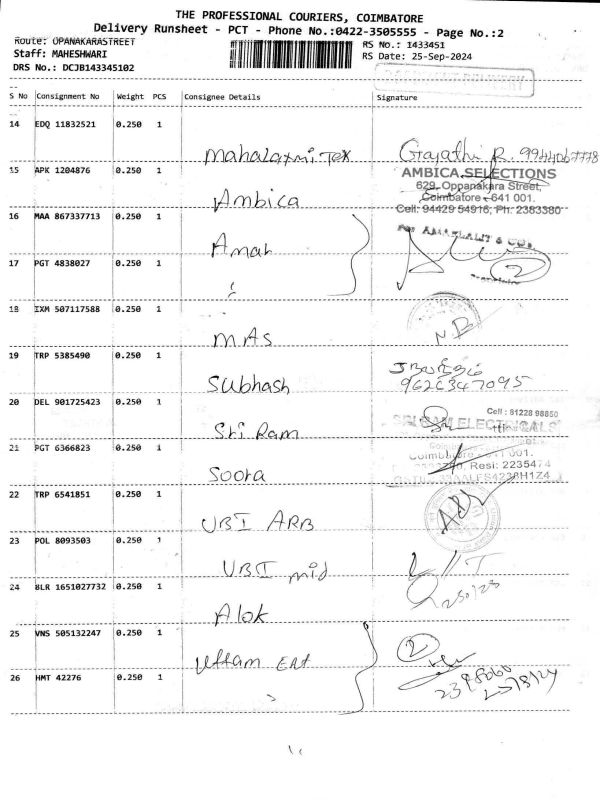 THE PROFESSIONAL COURIERS, COIMBATORE
Delivery Runsheet - PCT - Phone No.:0422-3505555 - Page No.:2
Route: OPANAKARASTREET
RS No.: 1433451
Staff: MAHESHWARI
RS Date: 25-Sep-2024
DRS No.: DCJB143345102
S No Consignment No Weight PCS Consignee Details Signature
14 EDQ 11832521 0.250 1
Mahalaxmi Tex Gajathi R. 9944067778
15 APK 1204876 0.250 1
AMBICA SELECTIONS
629, Oppanakara Street,
Ambica Coimbatore - 641 001.
Cell: 94429 54916, Ph: 2383380
16 MAA 867337713 0.250 1
Amah
17 PGT 4838027 0.250 1 2
18 IXM 507117588 0.250 1
MAS
19 TRP 5385490 0.250 1
Subhash 9626347095
20 DEL 901725423 0.250 1
Cell : 81228 98850
SRI RAM ELECTRICALS
Sri Ram
21 PGT 6366823 0.250 1
Coimbatore - 641 001.
Resi: 2235474
Soora
22 TRP 6541851 0.250 1
UBI ARB
23 POL 8093503 0.250 1
UBI mid
24 BLR 1651027732 0.250 1
Alok
25 VNS 505132247 0.250 1
Uttam Ent 2
26 HMT 42276 0.250 1